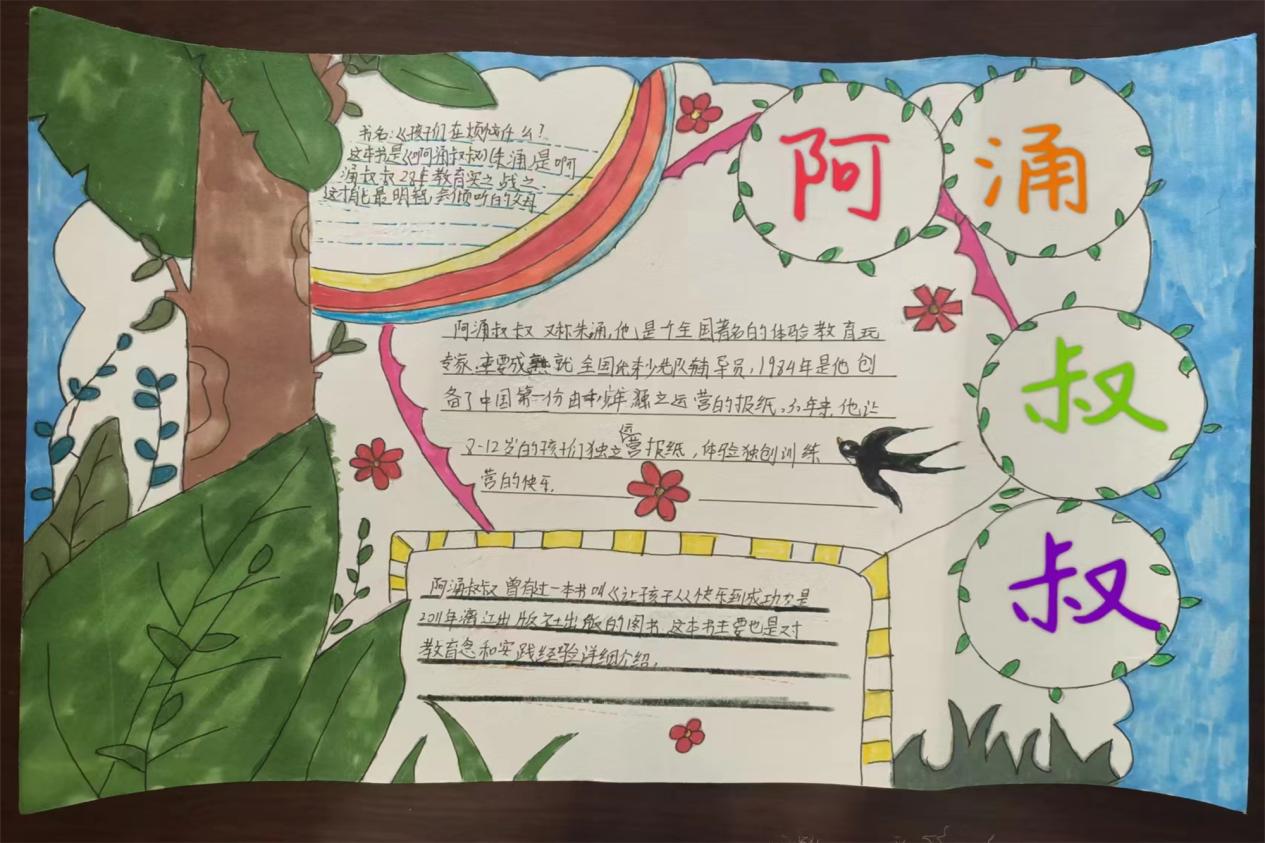 阿涌
叔
叔
书名:《孩子们在烦恼什么?
这本书是《啊涌叔叔》(朱涌)是啊
涌叔叔28年教育实之战之
这才能最明轻,会倾听白的父母
阿涌叔叔又称朱涌,他是个全国著名的体验教育玩
专家,主要成就全国优秀少先队辅导员,1984年是他创
备了中国第一份由中少年独立运营的报纸。30年来他让
8-12岁的孩子们独立运营报纸,体验独创训练
营的快乐.
阿涌叔叔曾有过一本书叫《让孩子从快乐到成功为是
2011年漓江出版社出版的图书,这本书主要也是对
教育念和实践经验详细介绍.